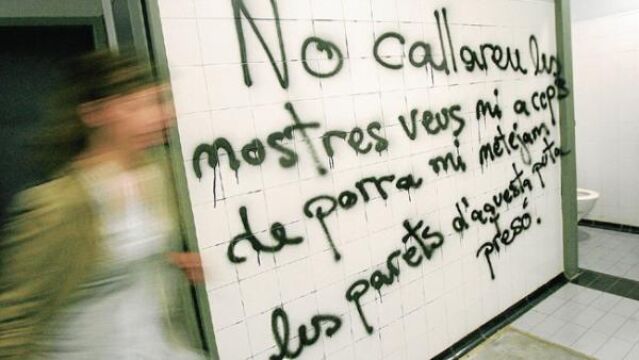 No callareu les
mostres veus mi a cops
de porra mi metejam
les parets d'aquesta puta
presó.